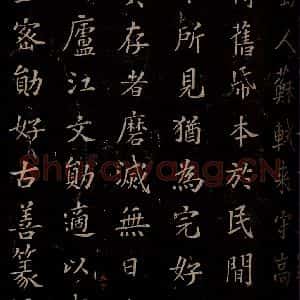 山人蘇軾來守高
舊紙本於民間
所見猶為完好
存者磨滅無日
廬江文勛適以
密勛好古善篆
Shufawang.CN